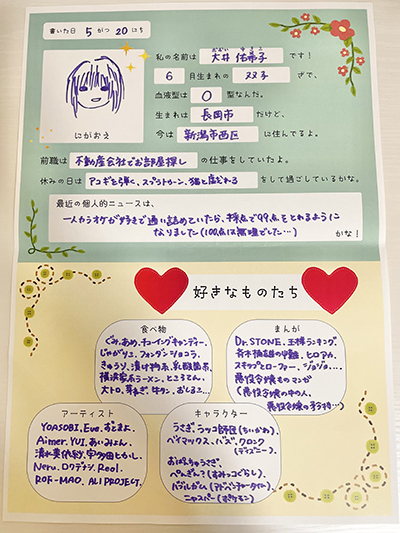 書いた日 5 がつ 20 にち
私の名前は 大井 佑希子 です！
6 月生まれの ふたご ざで、
血液型は O 型なんだ。
生まれは 長岡市 だけど、
今は 新潟市西区 に住んでるよ。
にがおえ
前職は 不動産会社でお部屋探し の仕事をしていたよ。
休みの日は アコギを弾く、スプラトゥーン、猫と戯れる をして過ごしているかな。
最近の個人的ニュースは、
一人カラオケが好きで通い詰めていたら、採点で99点をとれるように
なりました(100点は無理でした…) かな！
好きなものたち
食べ物
ぐみ、あめ、チューイングキャンディー、
じゃがりこ、フォンダンショコラ、
きゅうり、漬け物系、乳酸菌系、
横浜家系ラーメン、ところてん、
大トロ、芽ねぎ、牛タン、おしるこ…
まんが
Dr.STONE、王様ランキング、
斉木楠雄のΨ難、ヒロアカ、
スキップとローファー、ジョジョ…、
悪役令嬢ものマンガ
(悪役令嬢の中の人、
悪役令嬢の矜持…)
アーティスト
YOASOBI、Eve、ずとまよ、
Aimer、YUI、あいみょん、
清水美依紗、宇多田ヒカル、
Neru、ロクデナシ、Reol、
ROF-MAO、ALI PROJECT、
キャラクター
うさぎ、ラッコ師匠(ちいかわ)、
ベイマックス、ハデス、クロンク
(ディズニー)、
おぱんちゅうさぎ、
ぺんぎん?(すみっコぐらし)、
バブルガム(アドベンチャータイム)、
ニャスパー(ポケモン)